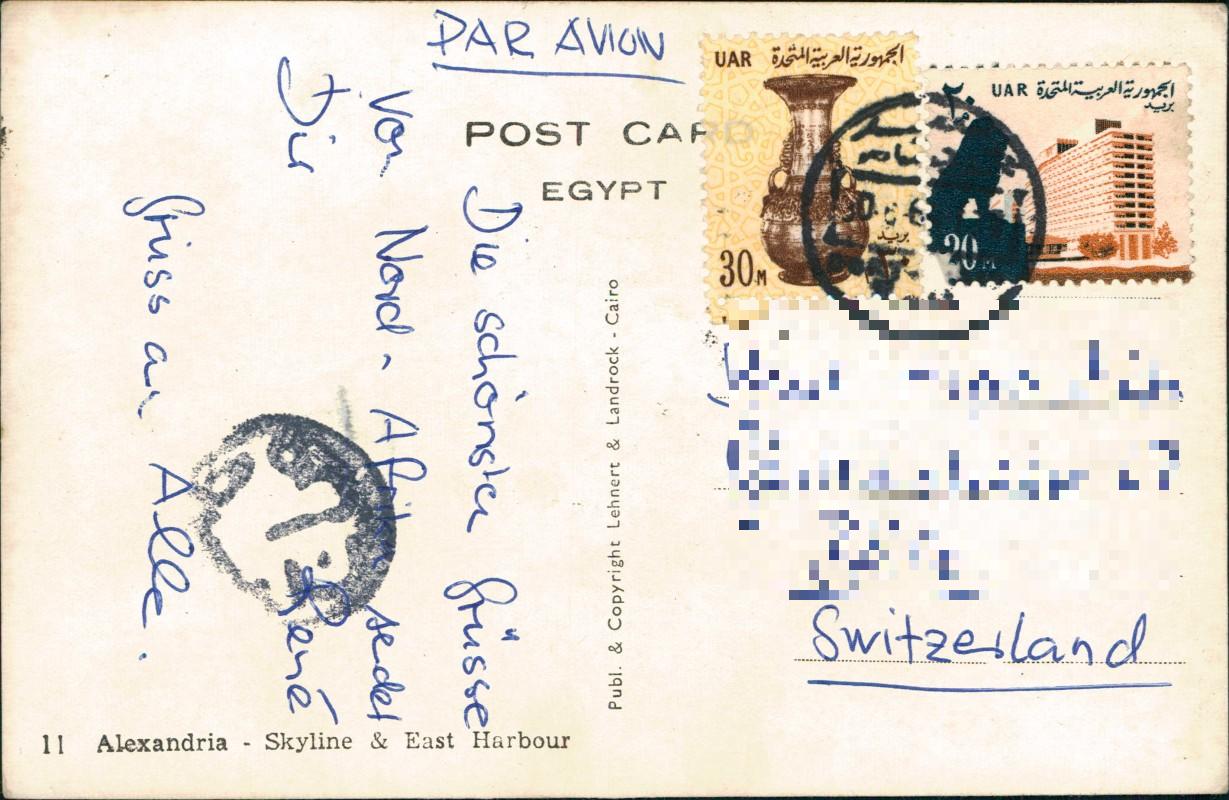 PAR AVION
POST CARD
EGYPT
Die schönsten Grüsse
von Nord-Afrika sendet
Dir René
Gruss an Alle.
Publ. & Copyright Lehnert & Landrock - Cairo
UAR الجمهورية العربية المتحدة
بريد
30 M
٢٠ UAR الجمهورية العربية المتحدة
بريد
20 M
Switzerland
11 Alexandria - Skyline & East Harbour